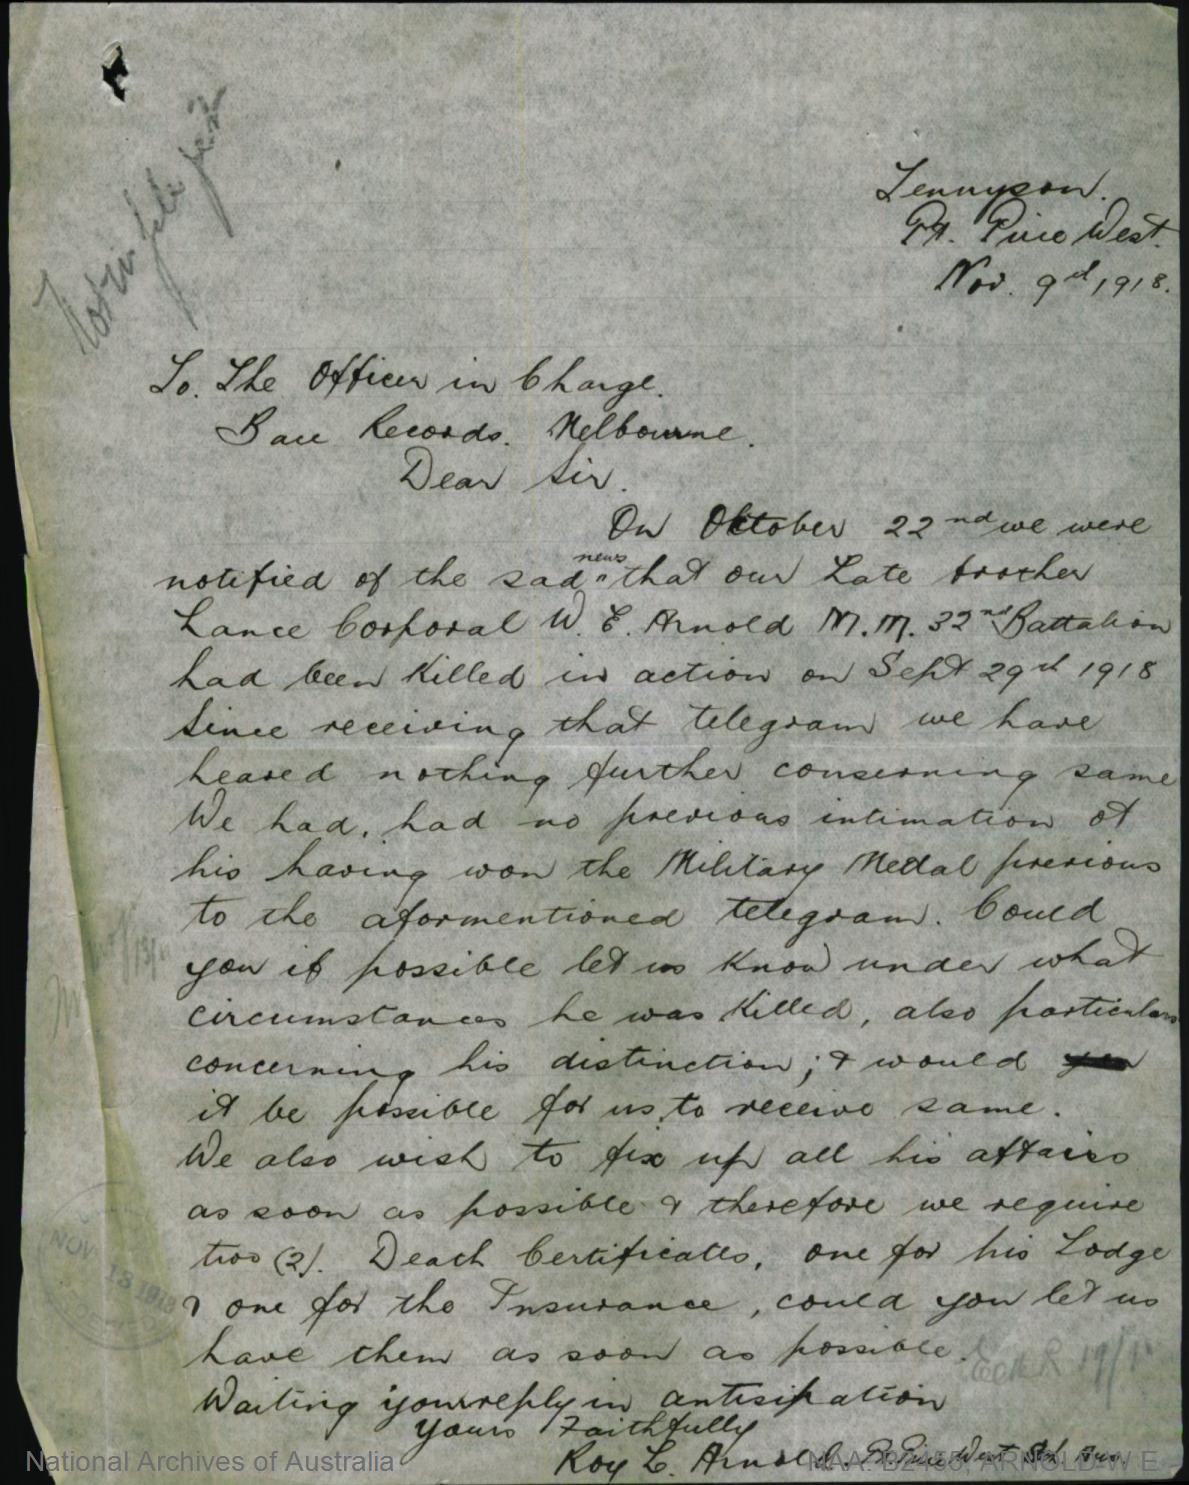 Not in file
Tennyson.
Pt. Pirie West.
Nov. 9th 1918.
To. The Officer in Charge.
Base Records. Melbourne.
Dear Sir.
On October 22nd we were
news
notified of the sad " that our Late brother
Lance Corporal W. E. Arnold M.M. 32nd Battalion
had been Killed in action on Sept 29th 1918
Since receiving that telegram we have
heared nothing further conserning same
We had, had no previous intimation of
his having won the Military Medal previous
to the aformentioned telegram. Could
you if possible let us Know under what
circumstances he was Killed, also particulars
concerning his distinction; & would
it be possible for us, to receive same.
We also wish to fix up all his affairs
as soon as possible & therefore we require
two (2). Death Certificates, one for his Lodge
& one for the Insurance, could you let us
have them as soon as possible.
Waiting your reply in antisipation
Yours Faithfully
Roy L. Arnold. Pt Pirie West Sth Aus.
NOV 13 1918
National Archives of Australia
NAA: B2455, ARNOLD W E